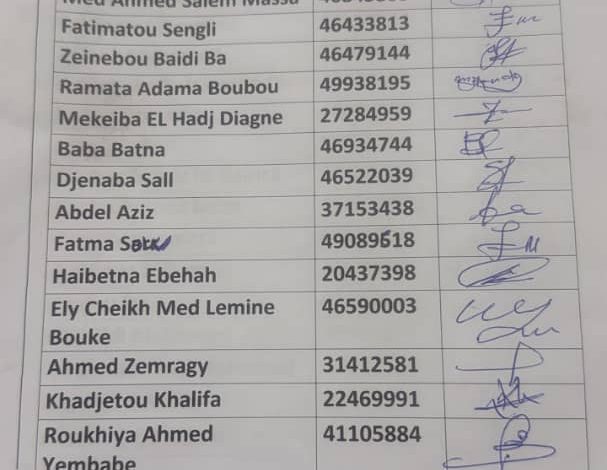 Med Ahmed Salem Massa
Fatimatou Sengli 46433813
Zeinebou Baidi Ba 46479144
Ramata Adama Boubou 49938195
Mekeiba EL Hadj Diagne 27284959
Baba Batna 46934744
Djenaba Sall 46522039
Abdel Aziz 37153438
Fatma 49089618
Haibetna Ebehah 20437398
Ely Cheikh Med Lemine 46590003
Bouke
Ahmed Zemragy 31412581
Khadjetou Khalifa 22469991
Roukhiya Ahmed 41105884
Yembabe